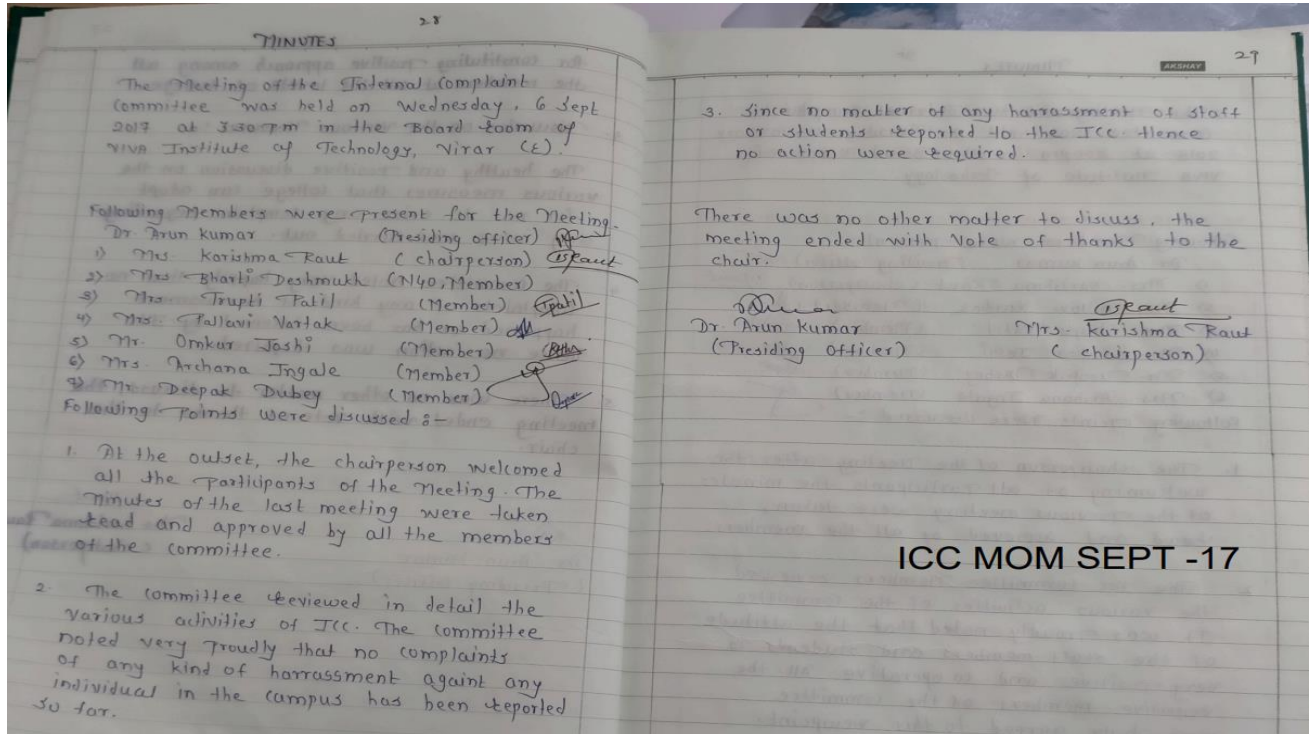 28
MINUTES
The Meeting of the Internal Complaint
Committee was held on Wednesday, 6 Sept
2017 at 3.30 pm in the Board room of
VIVA Institute of Technology, Virar (E).
Following Members were present for the Meeting.
Dr. Arun Kumar (Presiding officer)
1) Mrs. Karishma Raut (chairperson) Raut
2) Mrs Bharti Deshmukh (NGO, Member)
3) Mrs. Trupti Patil (Member) Tpatil
4) Mrs. Pallavi Vartak (Member)
5) Mr. Omkar Joshi (Member)
6) Mrs. Archana Ingale (Member)
7) Mr. Deepak Dubey (Member)
Following Points were discussed :-
1. At the outset, the chairperson welcomed
all the participants of the Meeting. The
minutes of the last meeting were taken
read and approved by all the members
of the committee.
2. The committee reviewed in detail the
various activities of ICC. The committee
noted very proudly that no complaints
of any kind of harrassment againt any
individual in the campus has been reported
so far.
AKSHAY
29
3. Since no matter of any harrassment of staff
or students reported to the ICC Hence
no action were required.
There was no other matter to discuss, the
meeting ended with Vote of thanks to the
chair.
Raut
Dr. Arun Kumar Mrs. Karishma Raut
(Presiding Officer) (chairperson)
ICC MOM SEPT -17